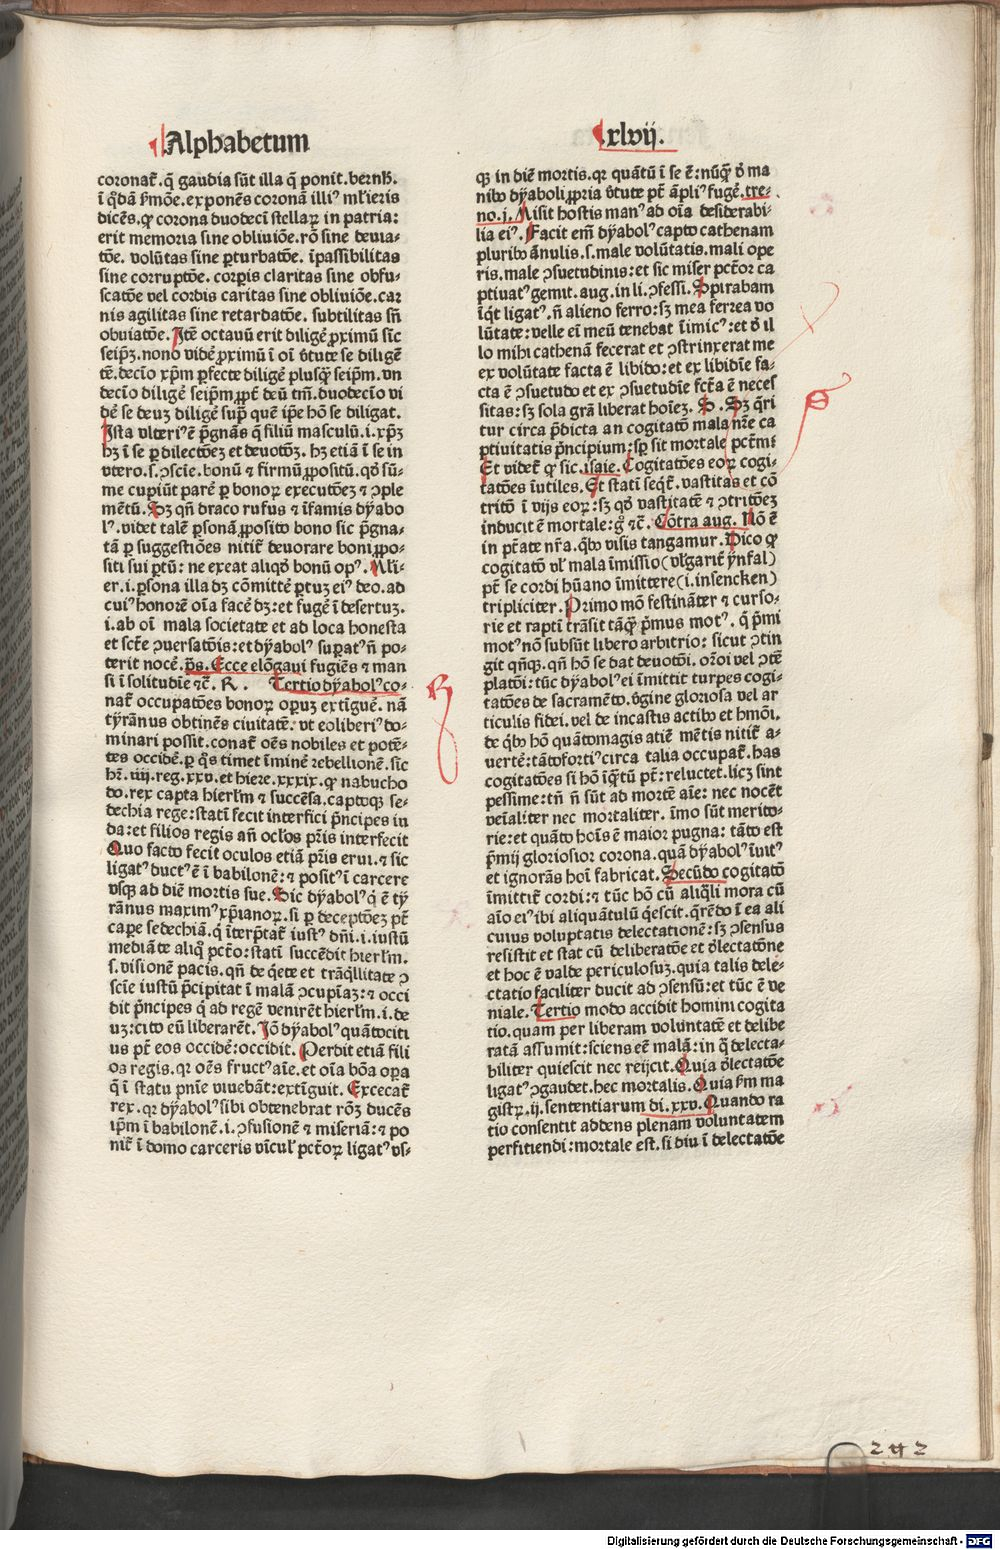 Alphabetum
coronat̃. q̃ gaudia sūt illa q̃ ponit. bernh̃.
ī q̇dā ẜmõe. exponēs coronā illiꝰ mĩieris
dicēs, ꝙ corona duodecī stellaꝝ in patria:
erit memoria sine obliuiõe. rõ sine deuia-
tõe. volūtas sine ꝑturbatõe. īpassibilitas
sine corruptõe. corꝑis claritas sine obfu-
scatõe vel cordis caritas sine obliuiõe. car
nis agilitas sine retardatõe. subtilitas sñ
obuiatõe. Itē octauū erit diligẽ ꝓximū sīc
seip̃ꝫ. nono vidẽ ꝓximū ī oī v̓tute se diligẽ
tē. decīo xp̃m ꝑfecte diligẽ plusq̃ȝ seip̃m. vn
decīo diligẽ seip̃m, ꝓpt̃ deū tm̄. duodecīo vi
dẽ se deuȝ diligẽ sup̃ quē ip̃e hõ se diligat.
Ista vlteriꝰ ē p̃gnās q̃ filiū masculū .i. xp̃ꝫ
hȝ ī se ꝑ dilectõeȝ et deuotõȝ. hȝ etiā ī se in
vtero .s. ꝯscīe. bonū ⁊ firmū ꝓpositū. qd̓ sū-
me cupiūt parẽ ꝑ bonoꝝ executõeȝ ⁊ ꝯple
mētū. Sȝ qñ draco rufus ⁊ īfamis dẏabo
lꝰ. videt talē ꝑsonā ꝓposito bono sic p̃gna-
tā ꝑ suggestiões nitit̃ deuorare boni ꝓpo-
siti sui ꝑtū: ne exeat aliqd̓ bonū opꝰ. Mĩi-
er .i. ꝑsona illa dȝ cōmittẽ ꝑtuȝ eiꝰ deo. ad
cuiꝰ honorē oīa facẽ dȝ: et fugẽ ī desertuȝ.
i. ab oī mala societate et ad loca honesta
et sctẽ ꝯuersatõis: et dẏabolꝰ suꝑatꝰ ñ po-
terit nocẽ. p̃s. Ecce elõgaui fugiēs ⁊ man
si ī solitudīe ⁊c̃. R. Tertio dẏabolꝰ co-
nat̃ occupatões bonoꝝ opuȝ extiguẽ. nā
tẏrānus obtinēs ciuitatē: vt eo liberiꝰ do-
minari possit. conat̃ oēs nobiles et potē-
tes occidẽ. ꝑ q̊s timet īminẽ rebellionē. sic
hr̃. iiij. reg. xxv. et hiere. xxxix. ꝙ nabucho
do. rex capta hierl̃m ⁊ succēsa. captoqȝ se-
dechia rege: statī fecit interfici p̃ncipes iu
da: et filios regis añ ocl̓os pr̃is interfecit
Quo facto fecit oculos etiā pr̃is erui. ⁊ sic
ligatꝰ ductꝰ ē ī babilonē: ⁊ positꝰ ī carcere
vsqȝ ad diē mortis sue. Sic dẏabolꝰ q̇ ē tẏ
rānus maximꝰ xp̃ianoꝝ. si ꝑ deceptõeȝ pt̃
caꝑe sedechiā. q̇ īterp̃tat̃ iustꝰ dn̄i .i. iustū
mediāte aliq̊ pctõ: statī succēdit hierl̃m.
s. visionē pacis. qñ de q̇ete et trāq̇llitate ꝯ
scīe iustū p̃cipitat ī malā ꝯcupīaȝ: ⁊ occi
dit p̃ncipes q̇ ad regē venirēt hierl̃m .i. de
uȝ: cito eū liberarēt. Iõ dẏabolꝰ quātociti
us pt̃ eos occidẽ: occidit. Perdit etiā fili
os regis. qꝛ oēs fructꝰ aīe. et oīa bõa oꝑa
q̃ ī statu pñie viuebāt: extīguit. Excecat̃
rex. qꝛ dẏabolꝰ sibi obtenebrat rõȝ ducēs
ip̃m ī babilonē .i. ꝯfusionē ⁊ miseriā: ⁊ po
nit̃ ī domo carceris vīcul̓ pctõꝝ ligatꝰ vs-
xlvij.
qȝ in diē mortis. qꝛ quātū ī se ē: nūq̃ȝ d̓ ma
nibꝰ dẏaboli ꝓpria v̓tute pt̃ āpliꝰ fugẽ. tre-
no. j. Misit hostis manꝰ ad oīa desiderabi-
lia eiꝰ. Facit em̄ dẏabolꝰ captoꝰ cathenam
pluribꝰ ānulis .s. male volūtatis. mali ope
ris. male ꝯsuetudinis: et sic miser pctõr ca
ptiuatꝰ gemit. aug. in li. ꝯfessi. Spirabam
īq̇t ligatꝰ. ñ alieno ferro: sȝ mea ferrea vo
lūtate: velle eī meū tenebat īimicꝰ: et d̓ il
lo mihi cathenā fecerat et ꝯstrinxerat me
ex volūtate facta ē libido: et ex libidīe fa-
cta ē ꝯsuetudo et ex ꝯsuetudīe fctā ē neces
sitas: sȝ sola grā liberat hoīeȝ. S. Sȝ q̃ri
tur circa p̃dicta an cogitatõ mala nr̃e ca
ptiuitatis p̃ncipium: sꝑ sit mortale pctm̄
Et videt̃ ꝙ sic. isaie. Cogitatões eoꝝ cogi-
tatões īutiles. Et statī seq̃t̃. vastitas et cõ
tritõ ī vijs eoꝝ: sȝ qd̓ vastitatē ⁊ ꝯtritõeȝ
inducit ē mortale: g̊ ⁊c̃. Cōtra aug. Nõ ē
in ptāte nr̃a. q̇bꝰ visis tangamur. Dico ꝙ
cogitatõ vl̓ mala īmissio (vl̓garit̃ ẏnfal)
pt̃ se cordi hūano īmittere (i. insencken)
tripliciter. Primo mõ festināter ⁊ curso-
rie et raptī trāsit tāq̃ȝ p̃mus motꝰ. q̃ p̃mi
motꝰ nõ subsūt libero arbitrio: sicut ꝯtin
git qñqȝ. qñ hõ se dat deuotõi. orõi vel ꝯtē
platõi: tūc dẏabolꝰ ei īmittit turpes cogi-
tatões de sacramēto. v̓gine gloriosa vel ar
ticulis fidei. vel de incastis actibꝰ et hmõi.
de q̇bꝰ hõ quātomagis atiē mētis nitit̃ a-
uertẽ: tātofortiꝰ circa talia occupat̃. has
cogitatões si hõ īq̃tū pt̃: reluctet. licȝ sint
pessime: tñ ñ sūt ad mortē aīe: nec nocēt
veīaliter nec mortaliter. īmo sūt merito-
rie: et quāto hoīs ē maior pugna: tāto est
p̃mij gloriosior corona. quā dẏabolꝰ īuitꝰ
et ignorās hoī fabricat. Secūdo cogitatõ
īmittit̃ cordi: ⁊ tūc hõ cū aliq̇li mora cū
aīo eiꝰ ibi aliquātulū q̇escit. q̃rēdo ī ea ali
cuius voluptatis delectationē: sȝ ꝯsensus
resistit et stat cū deliberatõe et d̓lectatõne
et hoc ē valde periculosuȝ. quia talis dele-
ctatio faciliter ducit ad ꝯsensū: et tūc ē ve
niale. Tertio modo accidit homini cogita
tio. quam per liberam voluntatē et delibe
ratā assumit: sciens eē malā: in q̃ delecta-
biliter quiescit nec reijcit. Quia d̓lectatõe
ligatꝰ ꝯgaudet. hec mortalis. Quia ẜm ma
gistꝝ. ij. sententiarum di. xxv. Quando ra
tio consentit addens plenam voluntatem
perfitiendi: mortale est. si diu ī delectatõe
R
S
242
Digitalisierung gefördert durch die Deutsche Forschungsgemeinschaft - DFG